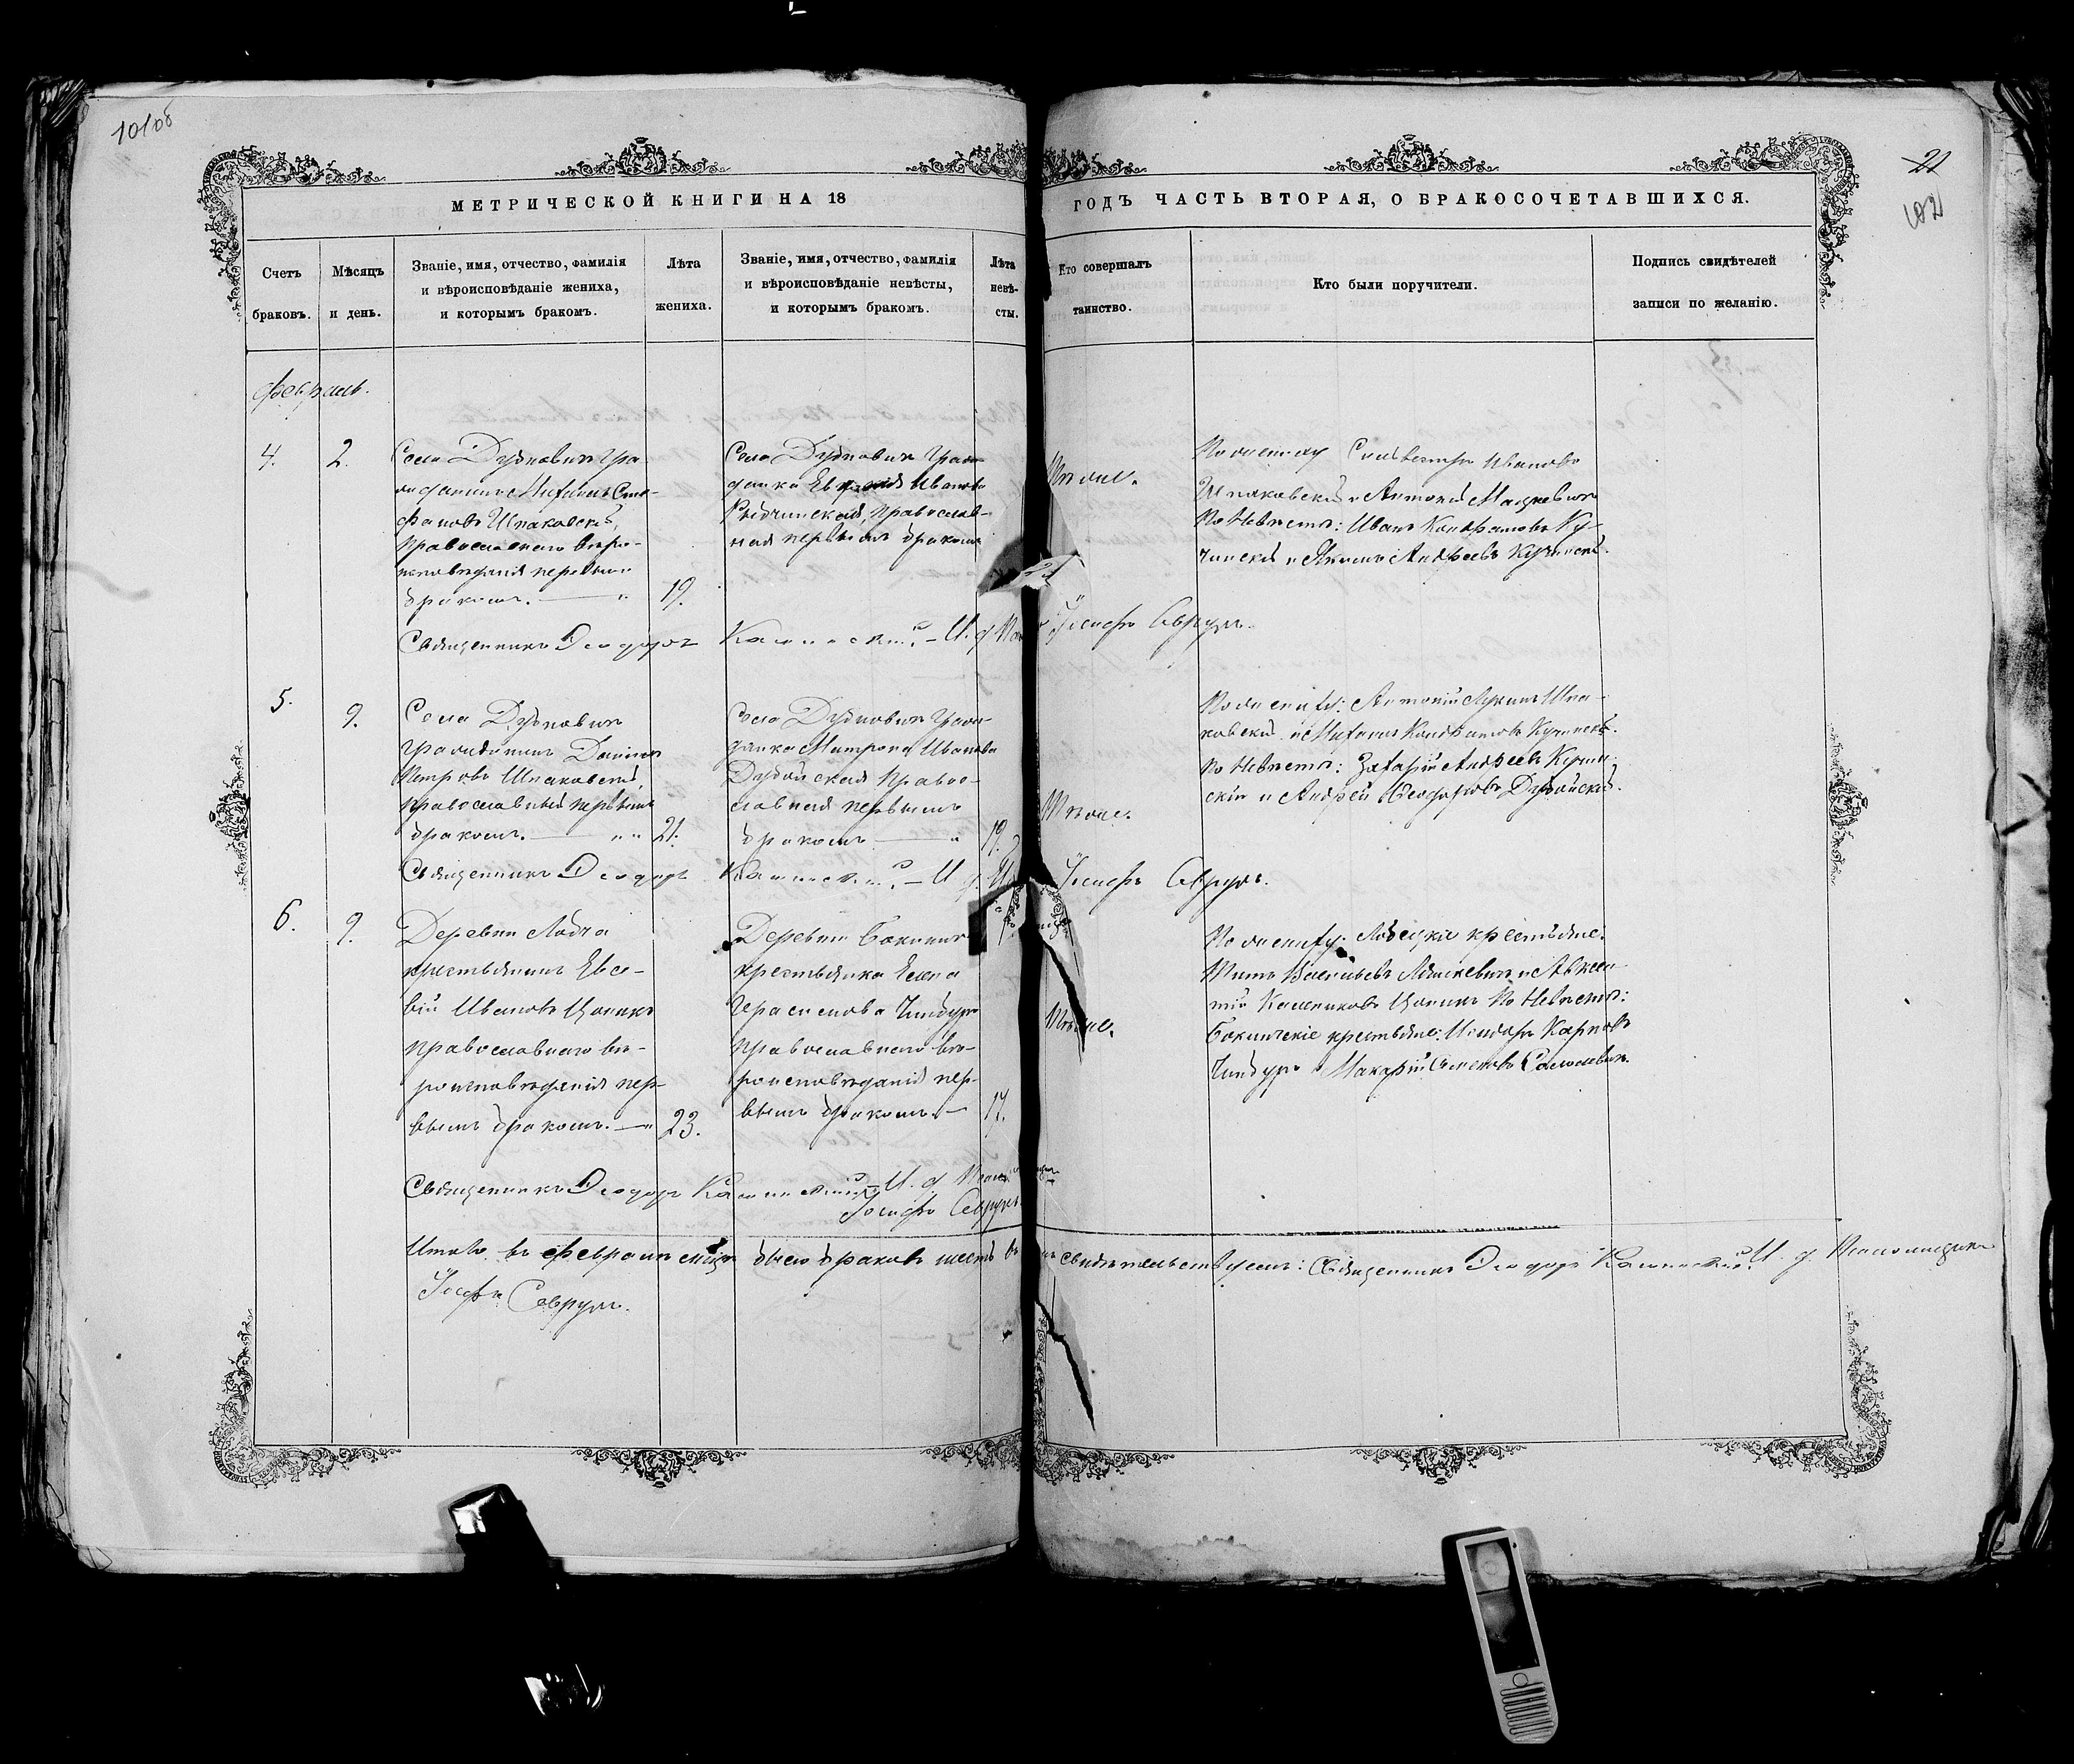 101об
21
102
МЕТРИЧЕСКОЙ КНИГИ НА 18
ГОДЪ ЧАСТЬ ВТОРАЯ, О БРАКОСОЧЕТАВШИХСЯ.
Счетъ
браковъ.
Мѣсяцъ
и день.
Званіе, имя, отчество, фамилія
и вѣроисповѣданіе жениха,
и которымъ бракомъ.
Лѣта
жениха.
Званіе, имя, отчество, фамилія
и вѣроисповѣданіе невѣсты,
и которымъ бракомъ.
Лѣта
невѣ-
сты.
Кто совершалъ
таинство.
Кто были поручители.
Подпись свидѣтелей
записи по желанію.
Февраль.
4.
2.
Села Дубновичъ Гра
жданинъ Михаилъ Сте-
фановъ Шпаковскій,
православнаго вѣро-
исповѣданія первымъ
бракомъ.
19.
Села Дубновичъ Граж-
данка Иванова
православ-
ная первымъ бракомъ
Тѣже.
По женихѣ Силвестръ Ивановъ
Шпаковскій и Антоній Мацкевичъ
По Невѣстѣ: Иванъ Кондратовъ Ку-
чинскій и Якимъ Андреевъ Кучинскій.
Священникъ Ѳеодоръ Каминскій. – И. д. Іосифъ Саврукъ.
5.
9.
Села Дубновичъ
Гражданинъ Даніилъ
Петровъ Шпаковскій,
православный первымъ
бракомъ.
21.
Села Дубновичъ Граж-
данка Матрона Иванова
Дубойская Правос-
лавная первымъ
бракомъ
19.
Тѣже.
По женихѣ: Антоній Лукинъ Шпа-
ковскій и Михаилъ Кондратовъ Кучинскій.
По Невѣстѣ: Захарій Андреевъ Кучин-
скій и Андрей Ѳеодоровъ Дубойскій.
Священникъ Ѳеодоръ Каминскій. – И. д. Іосифъ Саврукъ.
6.
9.
Деревни Лобча
крестьянинъ Евсе-
вій Ивановъ Цопикъ
православнаго вѣ-
роисповѣданія пер-
вымъ бракомъ.
23.
Деревни Бокиничъ
крестьянка Елена
Герасимова Чиндукъ
православнаго вѣ-
роисповѣданія пер-
вымъ бракомъ. —
17.
Тѣже.
По женихѣ: Лобецкіе крестьяне.
Титъ Васильевъ и Авксен-
тій Калениковъ Цопикъ По Невѣстѣ:
Бокиничскіе крестьяне: Исидоръ Карповъ
Чиндукъ Макарій Семеновъ
Священникъ Ѳеодоръ Каминскій – И. д.
Іосифъ Саврукъ
Итого въ Февралѣ мѣсяцѣ было браковъ шесть въ чемъ свидѣтельствуемъ: Священникъ Ѳеодоръ Каминскій. И. д. Псаломщика
Іосифъ Саврукъ.